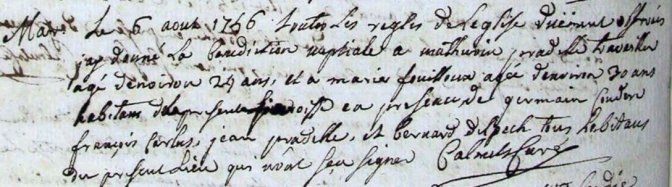 Mar. Le 6 aout 1766 toutes les regles de l'eglise duement observés
jay donné la benediction nuptiale a mathurin pradelle travailleur
agé denviron 24 ans, et a marie fouilloux agee denviron 30 ans
habitans du presente paroisse en presence de germain Couderc
françois Carlus, jean pradelle, et bernard delpech tous habitans
du present Lieu qui nont sçu signer Calmels Curé